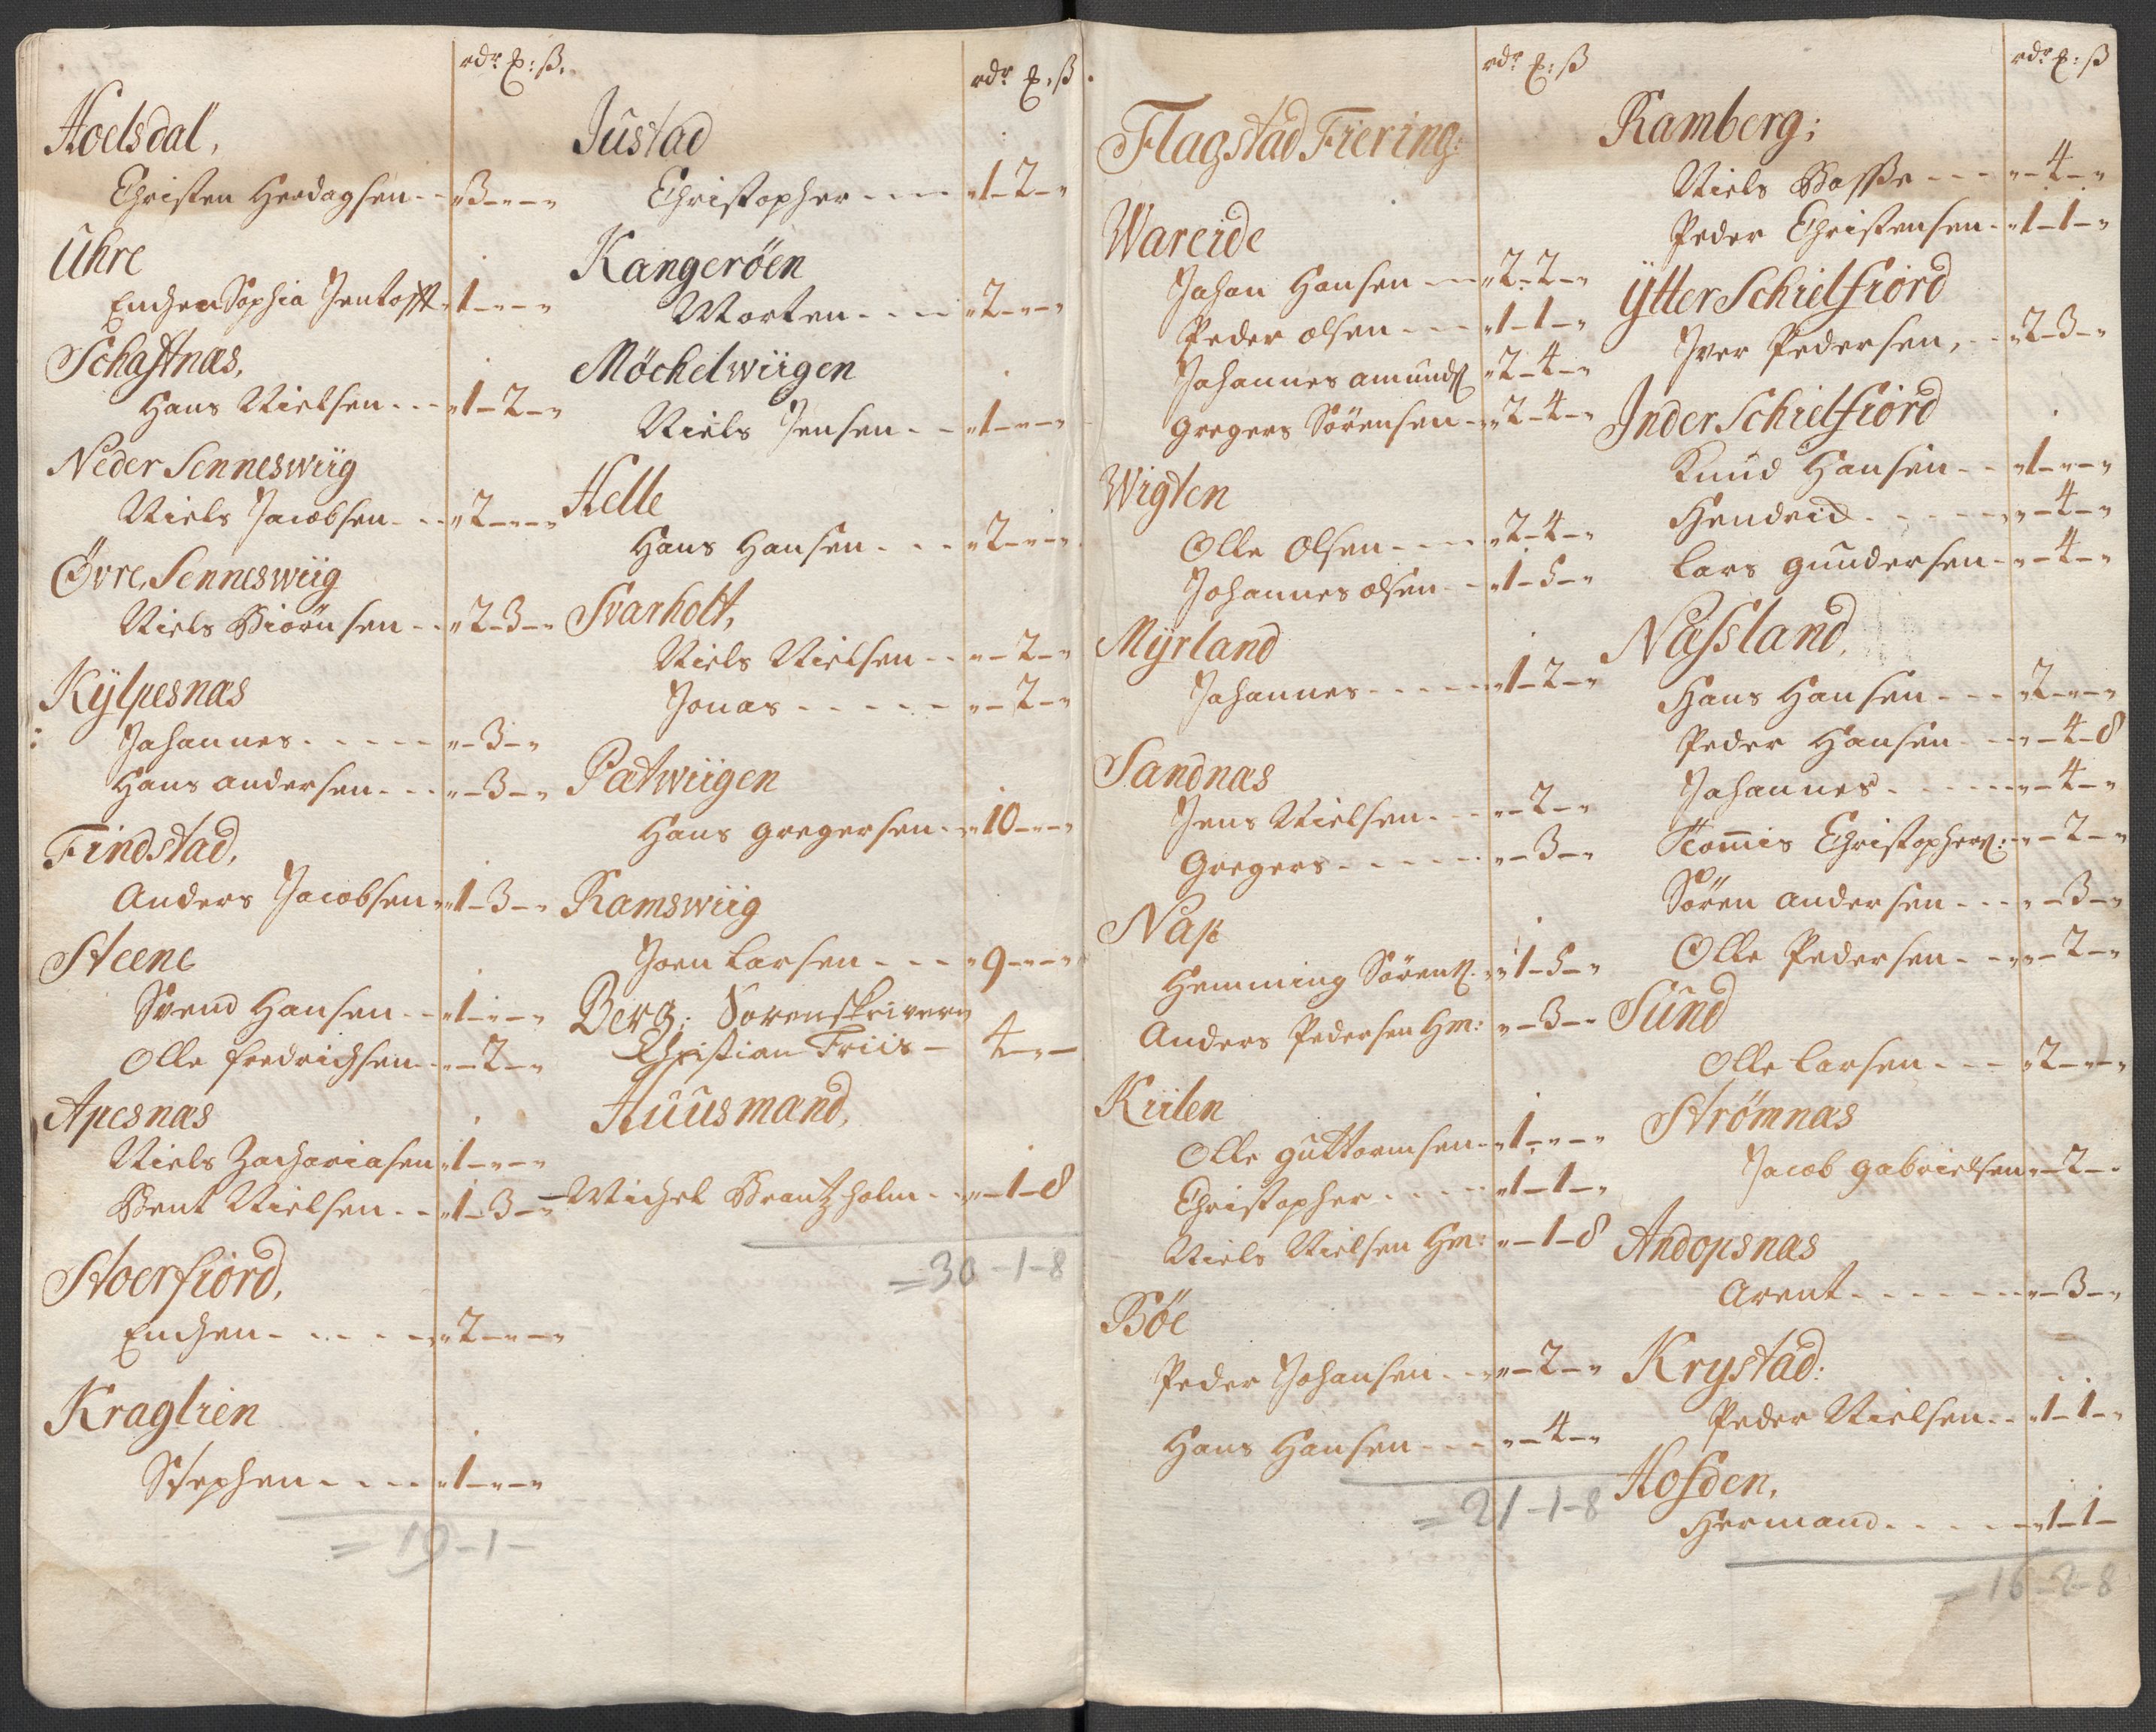 rdr ẜ: ß.
Hoelsdal,
Christen Herdagsen - - " 3 - " - "
Uhre
Enchen Sophia Jentofft " 1 - " - "
Schaftnæs,
Hans Nielsen - - - " 1 - 2 - "
Neder Senneswiig
Niels Jacobsen - - " 2 - " - "
Øvre Senneswiig
Niels Biörnsen - - " 2 - 3 - "
Kÿlpesnæs
Johannes - - - - - " - 3 - "
Hans Andersen - - - " - 3 - "
Findstad,
Anders Jacobsen " 1 - 3 - "
Steene
Svend Hansen - - " 1 - " - "
Olle Fredrichsen - " - 2 - "
Apesnæs
Niels Zachariasen " 1 - " - "
Bent Nielsen - - " 1 - 3 - "
Stoerfiord,
Enchen - - - - - " 2 - " - "
Kraglien
Stephen - - - - " 1 - " - "
= 19 - 1 -
rdr ẜ: ß
Justad
Christopher - - - " 1 - 2 - "
Kangerøen
Morten - - - - " 2 - " - "
Möchelwiigen
Niels Jensen - - " 1 - " - "
Helle
Hans Hansen - - - " 2 - " - "
Svarholt,
Niels Nielsen - - " - 2 - "
Jonas - - - - - " - 2 - "
Pætwiigen
Hans Gregersen - " 10 - " - "
Ramswiig
Joen Larsen - - - " 9 - " - "
Berg: Sorenskrivern
Christian Friis - 4 - " -
Huusmænd,
Michel Brantzholm - - " - 1 - 8
= 30 - 1 - 8
rdr ẜ: ß
Flagstad Fiering:
Wareide
Johan Hansen - - " 2 - 2 - "
Peder Olsen - - - " 1 - 1 - "
Johannes Amunds: " 2 - 4 - "
Gregers Sörensen - " 2 - 4 - "
Wigten
Olle Olsen - - - - " 2 - 4 - "
Johannes Olsen - " 1 - 5 - "
Mÿrland
Johannes - - - - - " 1 - 2 - "
Sandnæs
Jens Nielsen - - - " - 2 - "
Gregers - - - - - " - 3 - "
Næss
Hemming Sörens: " 1 - 5 - "
Anders Pedersen Hm: " - 3 - "
Kiilen
Olle Guttormsen - " 1 - " - "
Christopher - - - - " 1 - 1 - "
Niels Nielsen Hm: " - 1 - 8
Böe
Peder Johansen - - " - 2 - "
Hans Hansen - - - " - 4 - "
= 21 - 1 - 8
rdr ẜ: ß
Ramberg;
Niels Basse - - - " - 4 - "
Peder Christensen - " 1 - 1 - "
Ÿtter Schielfiord
Iver Pedersen, - - " 2 - 3 - "
Inder Schielfiord
Knud Hansen - - " 1 - " - "
Hendrich - - - - - " - 4 - "
Lars Gundersen - " - 4 - "
Næssland,
Hans Hansen - - - " 2 - " - "
Peder Hansen - - " - 4 - 8
Johannes - - - - - " - 4 - "
Tommis Christophers: " - 2 - "
Sören Andersen - - - " - 3 - "
Olle Pedersen - - " - 2 - "
Sund
Olle Larsen - - - " 2 - " - "
Strömnæs
Jacob Gabrielsen " - 2 - "
Andopsnæs
Arent - - - - - - " - 3 - "
Krystad:
Peder Nielsen - - " 1 - 1 - "
Hofden,
Hermand - - - - - " 1 - 1 -
= 16 - 2 - 8